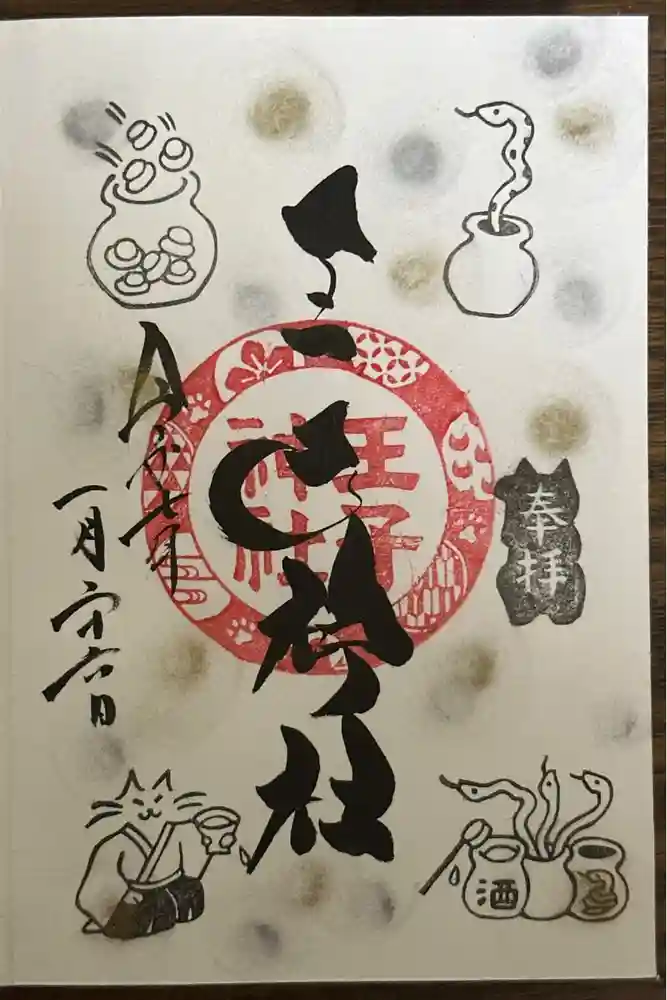 奉拝
王子神社
王子
神社
令和七年
一月二十六日
酒